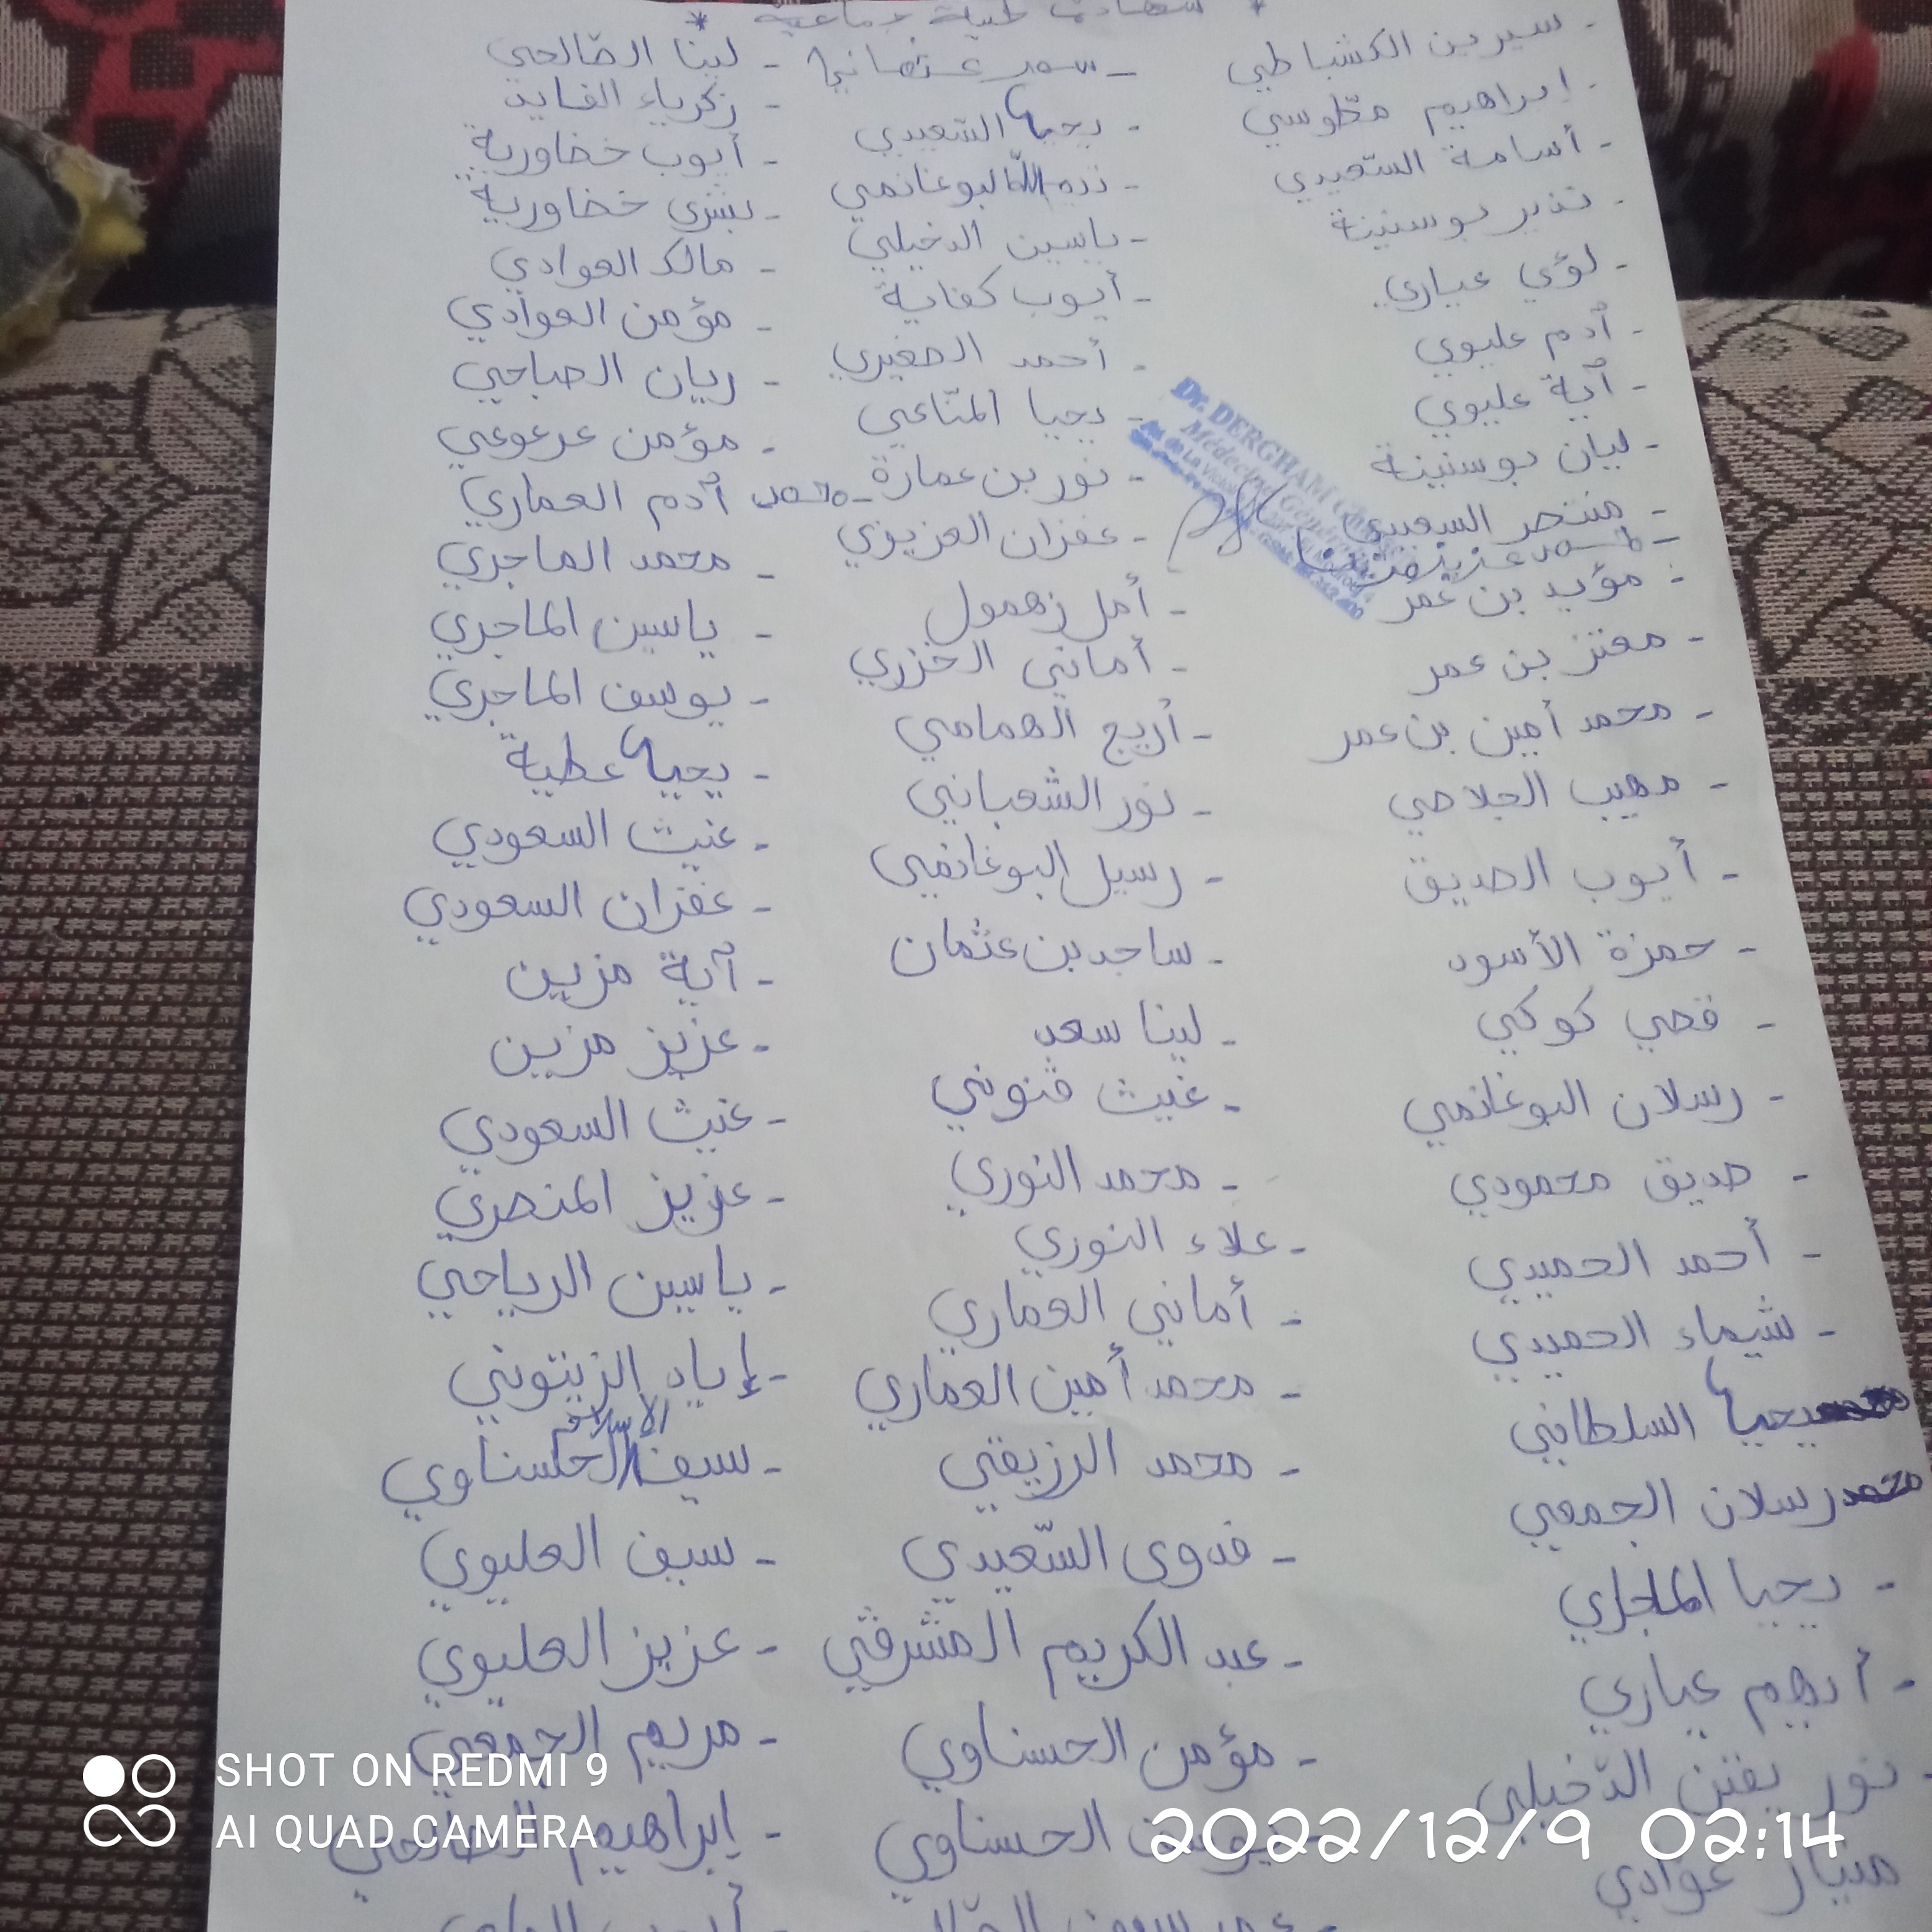 * شهادة طبية جماعية *
- سيرين الكشباطي
- إبراهيم مطوسي
- أسامة السّعيدي
- نذير بوسنينة
- لؤي عياري
- آدم عليوي
- آية عليوي
- ليان بوسنينة
- منتصر السعيدي
- مؤيد بن عمر
- معتز بن عمر
- محمد أمين بن عمر
- مهيب الجلاصي
- أيوب الصديق
- حمزة الأسود
- قصي كوكي
- رسلان البوغانمي
- صديق محمودي
- أحمد الحميدي
- شيماء الحميدي
يحيا السلطاني
رسلان الجمعي
- يحيا الماجري
- أدهم عياري
- نور يقين الدّخيلي
ميار عوادي
- سمر عثماني
- يحيا السّعيدي
البوغانمي
- ياسين الدخيلي
- أيوب كفاية
- أحمد الصغيري
- يحيا المنّاعي
- نور بن عمارة
- غفران العزيزي
- أمل زهمول
- أماني الخزري
- أريج الهمامي
- نور الشعباني
- رسيل البوغانمي
- ساجد بن عثمان
- لينا سعد
- غيث ڨنوني
- محمد النوري
- علاء النوري
- أماني العماري
- محمد أمين العماري
- محمد الرزيقي
- فدوى السّعيدي
- عبد الكريم المشرڨي
- مؤمن الحسناوي
الحسناوي
- لينا الصّالحي
- زكرياء القايد
- أيوب خضاورية
- بشرى خضاورية
- مالك العوادي
- مؤمن العوادي
- ريان الصباحي
- مؤمن عرعوعي
- محمد آدم العماري
- محمد الماجري
- ياسين الماجري
- يوسف الماجري
- يحيا عطية
- غيث السعودي
- غفران السعودي
- آية مزين
- عزيز مزين
- غيث السعودي
- عزيز المنصري
- ياسين الرياحي
- إياد الزيتوني
- سيف الإسلام الحسناوي
- سيف العليوي
- عزيز العليوي
- مريم الجمعي
- إبراهيم الصالحي
Dr. DERGHAM
Médecine Générale
SHOT ON REDMI 9
AI QUAD CAMERA
2022/12/9 02:14